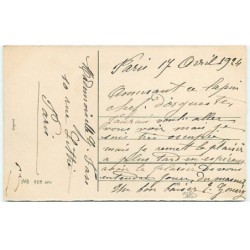 Paris 17 Avril 1924
Amusant ce lapin
chef d'orquestre
J'aurais voulu aller
vous voir mais je
suis très
mais je remet le plaisir
a plus tard en espérant
avoir le plaisir de vous
entendre jouer du
Un bon baiser E.
Mademoiselle
10 rue
Paris